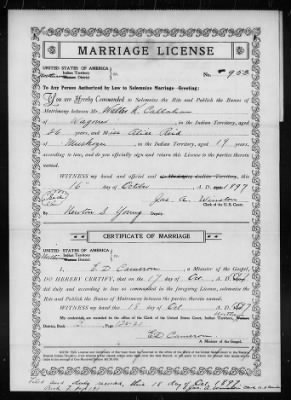 MARRIAGE LICENSE
UNITED STATES OF AMERICA
Indian Territory
Northern District
No. 952
To Any Person Authorized by Law to Solemnize Marriage—Greeting:
You are Hereby Commanded to Solemnize the Rite and Publish the Banns of
Matrimony between Mr. Walter R. Callahan
of Wagoner in the Indian Territory, aged
26 years, and Miss Alice Reid
of Muskogee in the Indian Territory, aged 19 years,
according to law, and do you officially sign and return this License to the parties therein
named.
WITNESS my hand and official seal
16 day of October A. D. 1897
Jas. A. Winston
Clerk of the U. S. Court.
By Newton S. Young Deputy
CERTIFICATE OF MARRIAGE
UNITED STATES OF AMERICA
Indian Territory
Northern District
I, E. D. Cameron, a Minister of the Gospel,
DO HEREBY CERTIFY, that on the 17 day of Oct A. D. 1897
did duly and according to law as commanded in the foregoing License, solemnize the
Rite and Publish the Banns of Matrimony between the parties therein named.
WITNESS my hand this 18 day of Oct A. D. 1897
My credentials are recorded in the office of the Clerk of the United States Court, Indian Territory, Northern
District, Book 2 Page
E D Cameron
A Minister of the Gospel.
Filed and duly recorded, this 18 day of Oct 1897